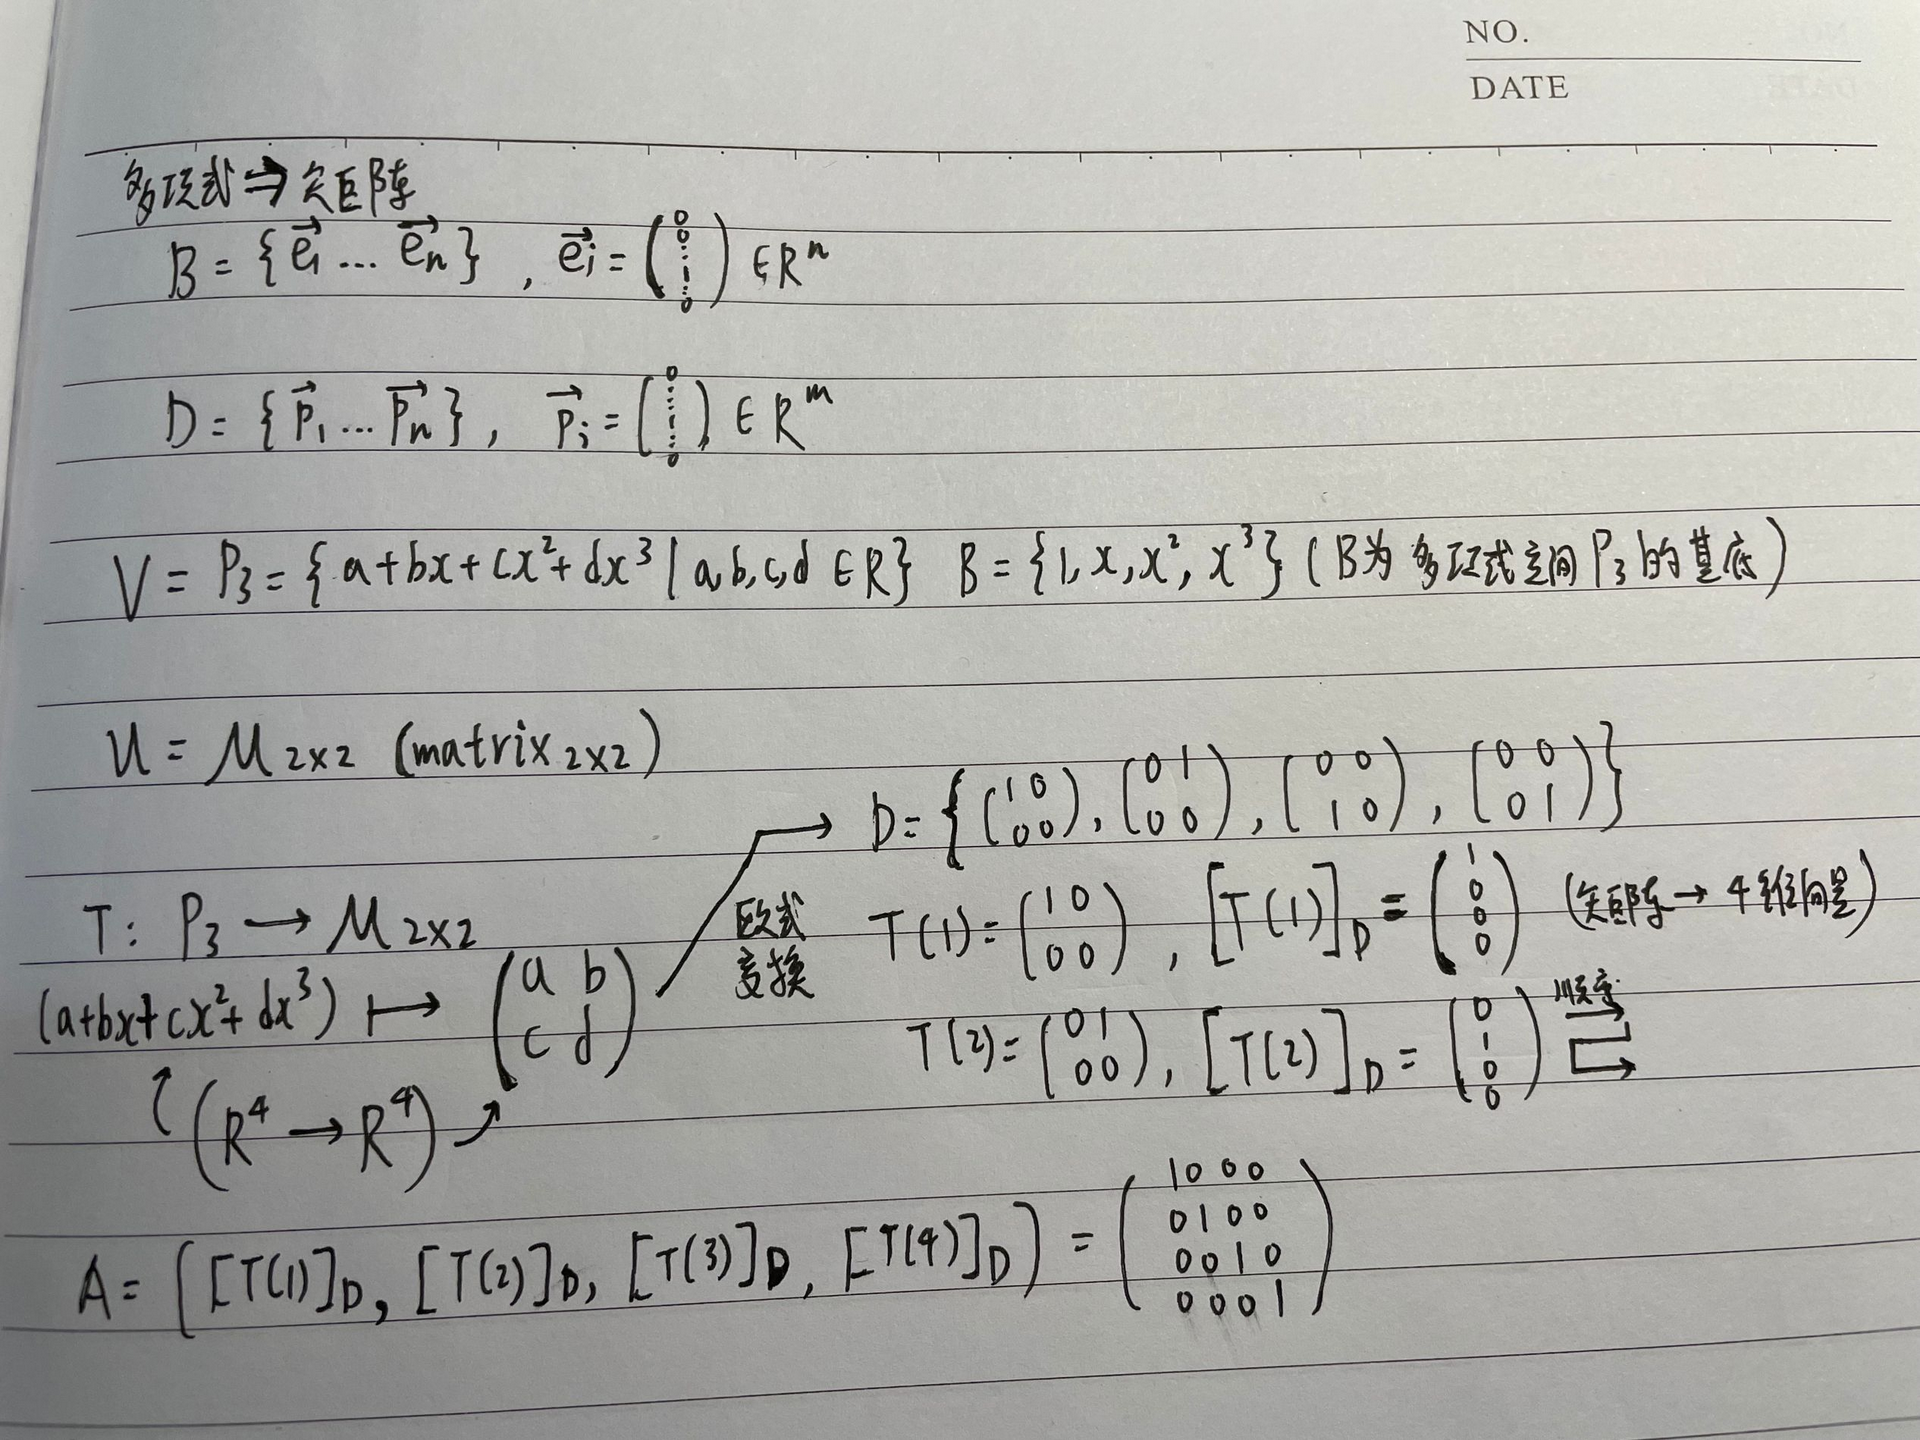 NO.
DATE
多项式⇒矩阵
B = {e⃗₁ ... e⃗ₙ} , e⃗ᵢ = (0 0 ⋮ 1 ⋮ 0) ∈ Rⁿ
D = {p⃗₁ ... p⃗ₙ} , p⃗ᵢ = (0 ⋮ 1 ⋮ 0) ∈ Rᵐ
V = P₃ = {a+bx+cx²+dx³ | a,b,c,d ∈ R} B = {1, x, x², x³} (B为多项式空间P₃的基底)
U = M₂ₓ₂ (matrix₂ₓ₂)
→ D = {(1 0 / 0 0), (0 1 / 0 0), (0 0 / 1 0), (0 0 / 0 1)}
T: P₃ → M₂ₓ₂
(a+bx+cx²+dx³) ↦ (a b / c d)
(R⁴ → R⁴)
欧式
变换
T(1) = (1 0 / 0 0) , [T(1)]_D = (1 0 0 0) (矩阵→4维向量)
T(2) = (0 1 / 0 0) , [T(2)]_D = (0 1 0 0) 顺序
A = ([T(1)]_D, [T(2)]_D, [T(3)]_D, [T(4)]_D) = (1 0 0 0 / 0 1 0 0 / 0 0 1 0 / 0 0 0 1)